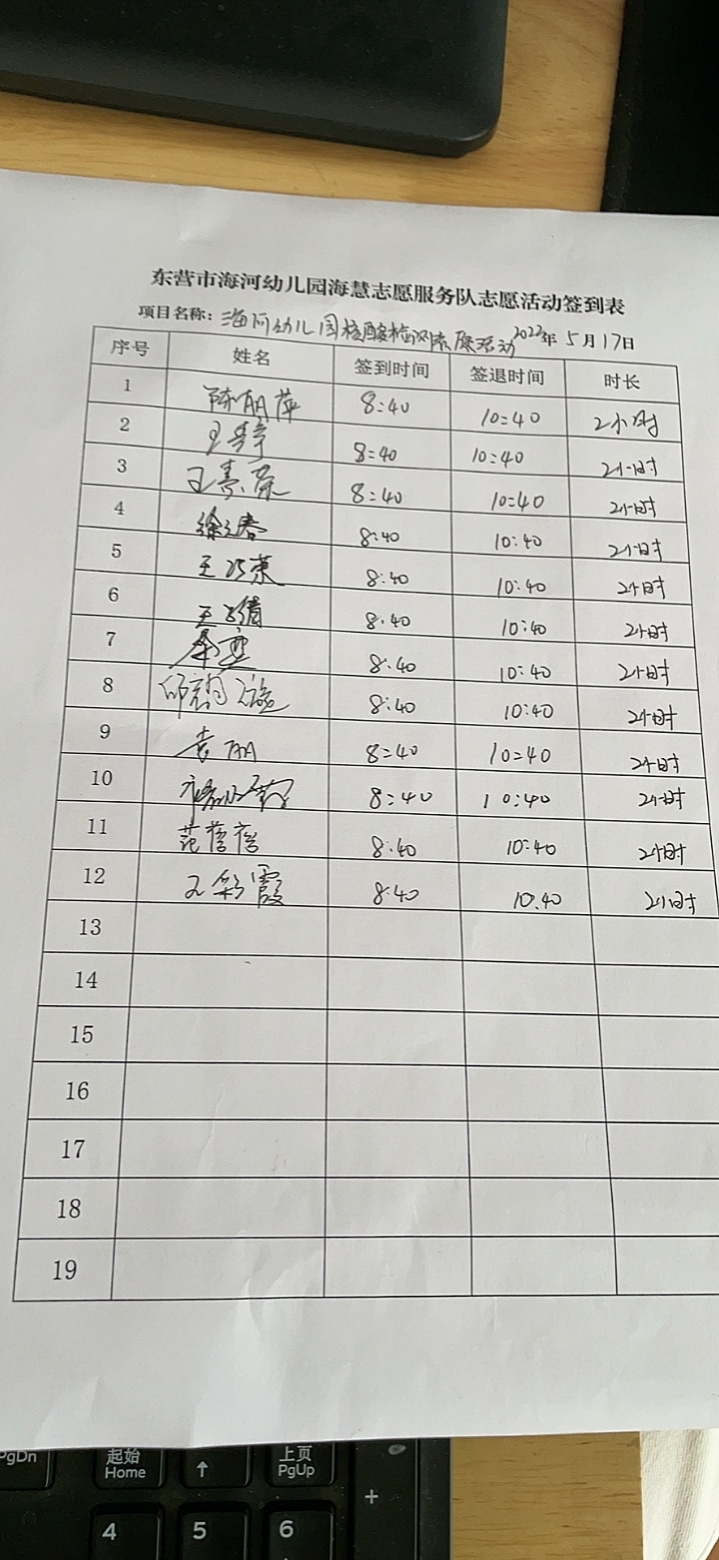 东营市海河幼儿园海慧志愿服务队志愿活动签到表
项目名称：海河幼儿园核酸检测志愿活动 2022年5月17日
序号 姓名 签到时间 签退时间 时长
1 陈丽萍 8:40 10:40 2小时
2 王 8:40 10:40 2小时
3 王素荣 8:40 10:40 2小时
4 徐春 8:40 10:40 2小时
5 王巧荣 8:40 10:40 2小时
6 王倩 8:40 10:40 2小时
7 8:40 10:40 2小时
8 8:40 10:40 2小时
9 袁丽 8:40 10:40 2小时
10 8:40 10:40 2小时
11 范蓓蓓 8:40 10:40 2小时
12 王彩霞 8:40 10.40 2小时
13
14
15
16
17
18
19
PgDn 起始 上页
Home ↑ PgUp +
4 5 6